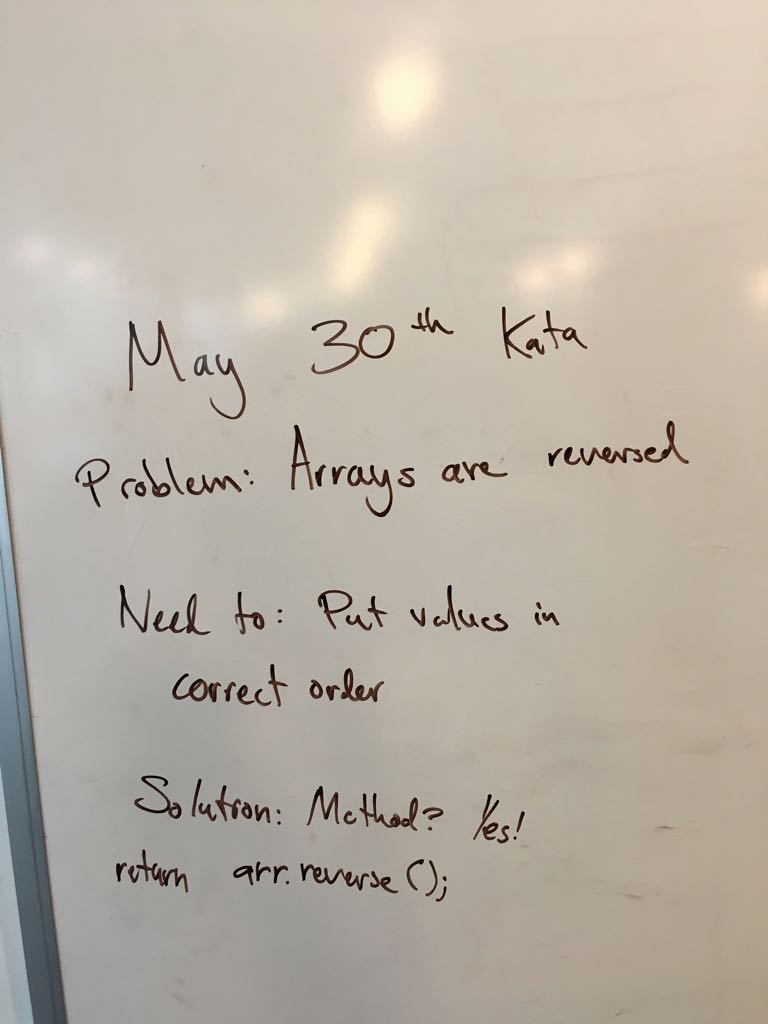 May 30th Kata
Problem: Arrays are reversed
Need to: Put values in
correct order
Solution: Method? Yes!
return arr.reverse();